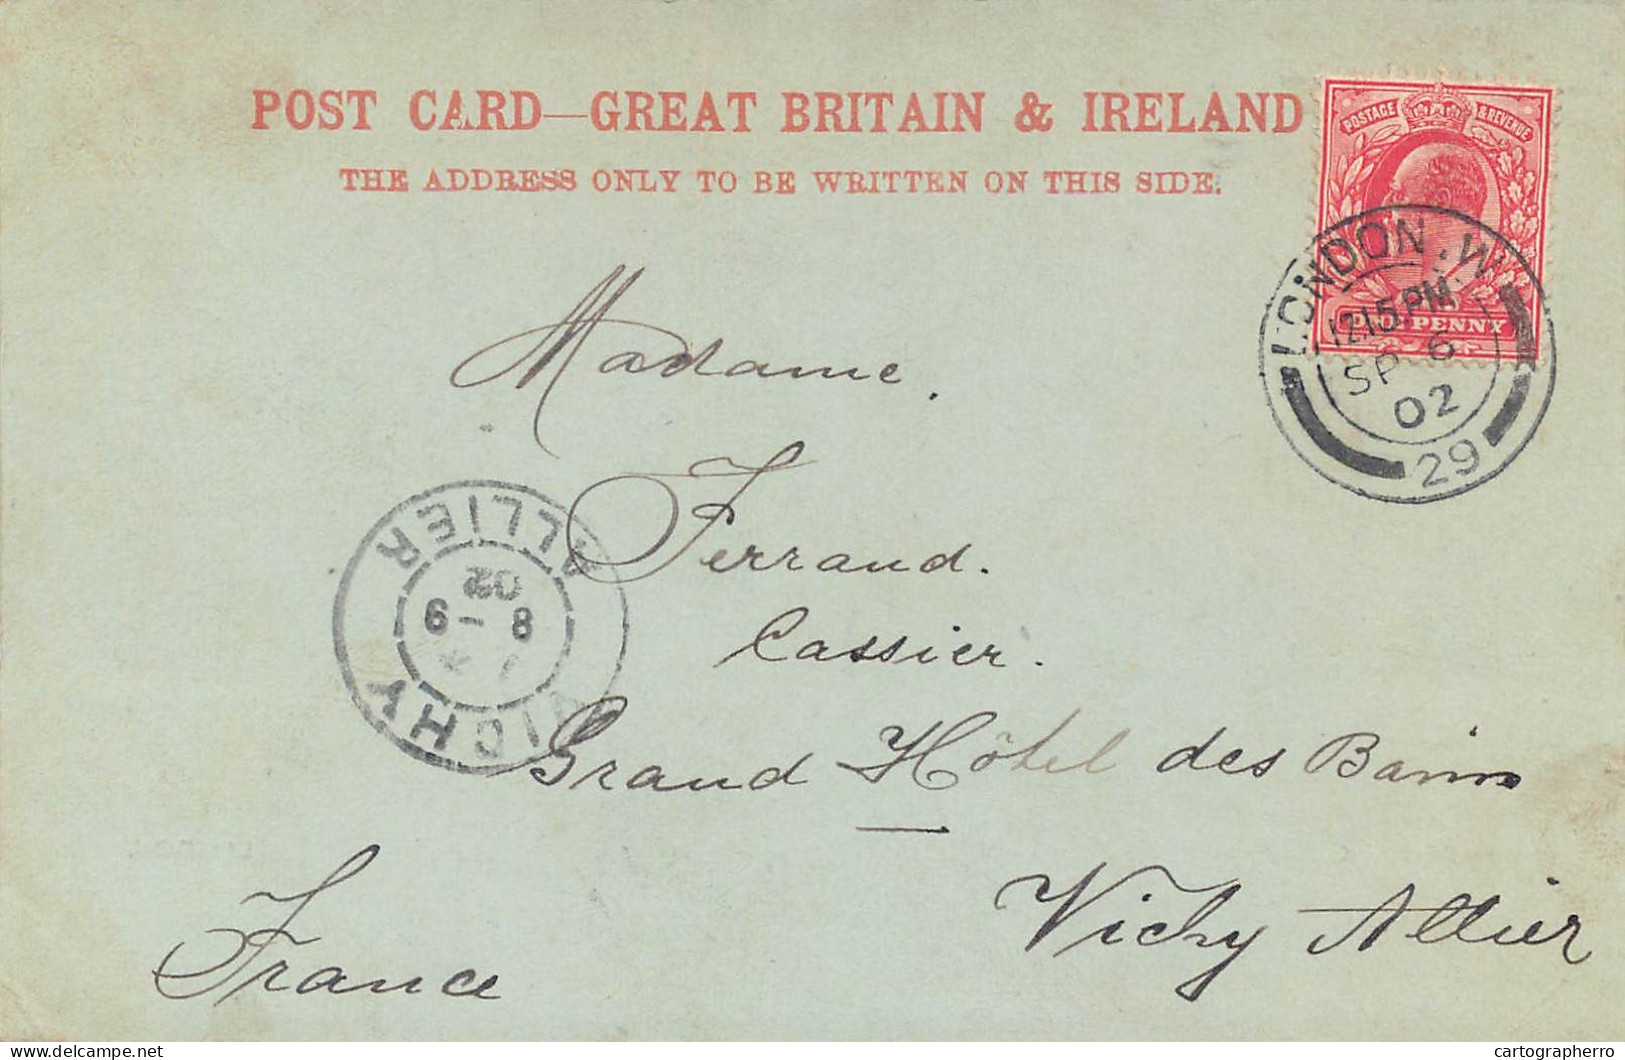 POST CARD—GREAT BRITAIN & IRELAND
THE ADDRESS ONLY TO BE WRITTEN ON THIS SIDE.
POSTAGE & REVENUE
ONE PENNY
LONDON.W
12.15 PM
SP 6
02
29
Madame.
Ferrand.
Cassier.
Grand Hôtel des Bains
Vichy Allier
France
VICHY
8 - 9
02
ALLIER
delcampe.net
cartographerro